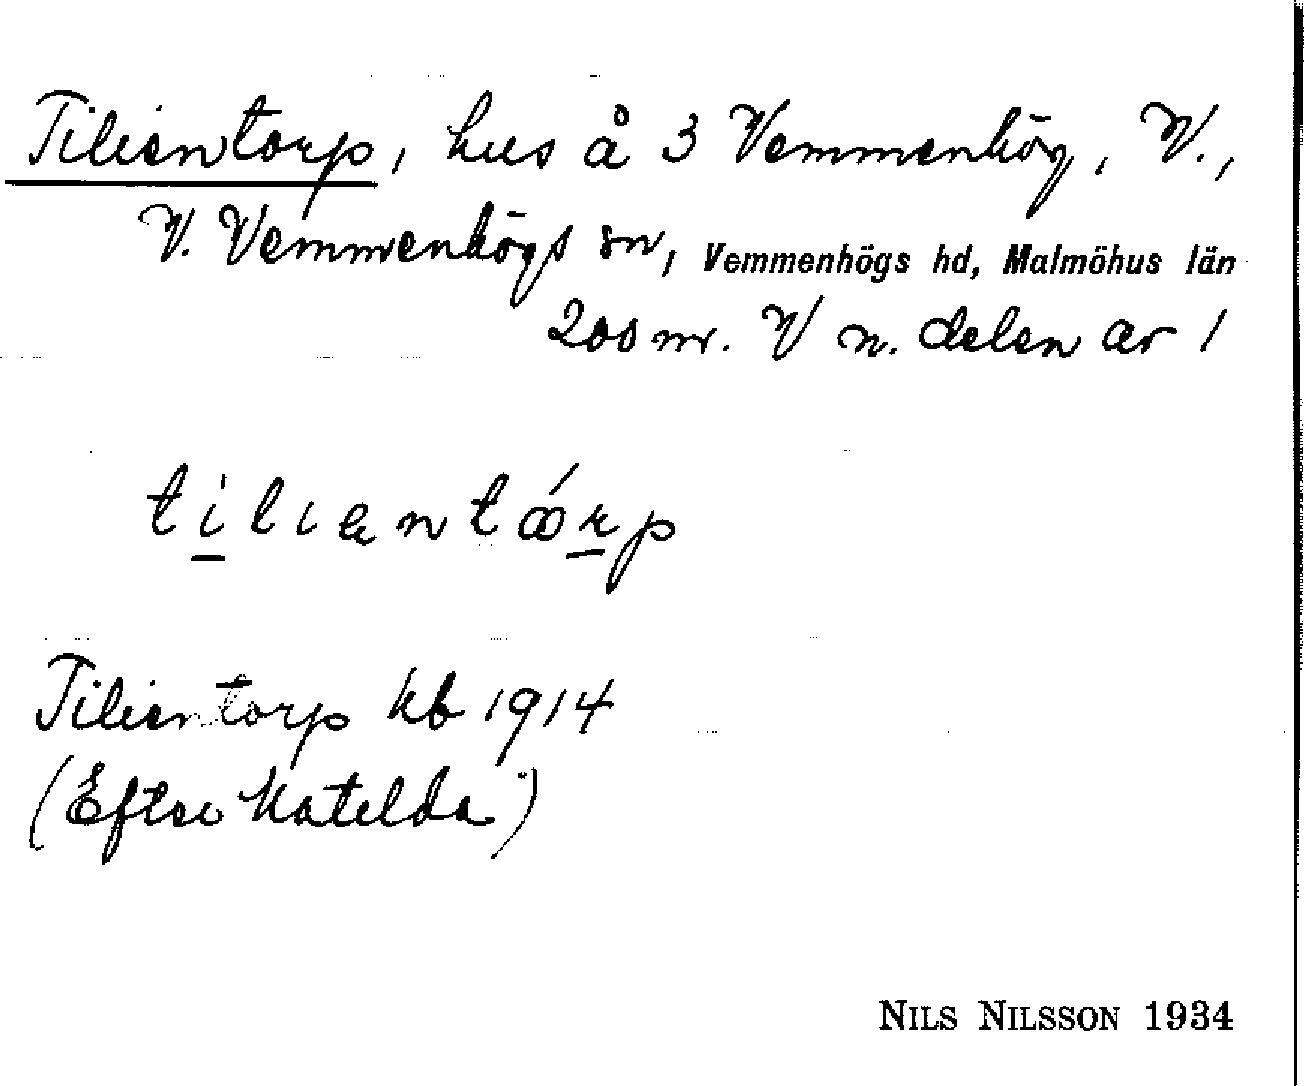 Tilientorp, hus å 3 Vemmenhög, V.,
V. Vemmenhögs sn, Vemmenhögs hd, Malmöhus län
200 m. V n. delen av 1
tilientǿrp
Tilientorp kb 1914
(Efter Matilda)
NILS NILSSON 1934